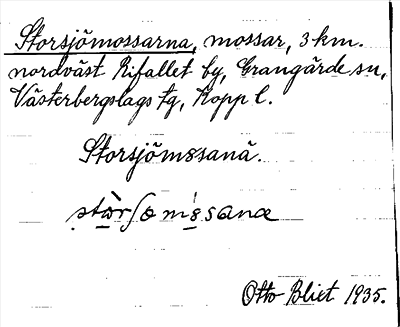 Storsjömossarna, mossar, 3 km.
nordväst Rifallet by, Grangärde sn,
Västerbergslags tg, Kopp l.
Storsjömossanä.
Otto Blixt 1935.